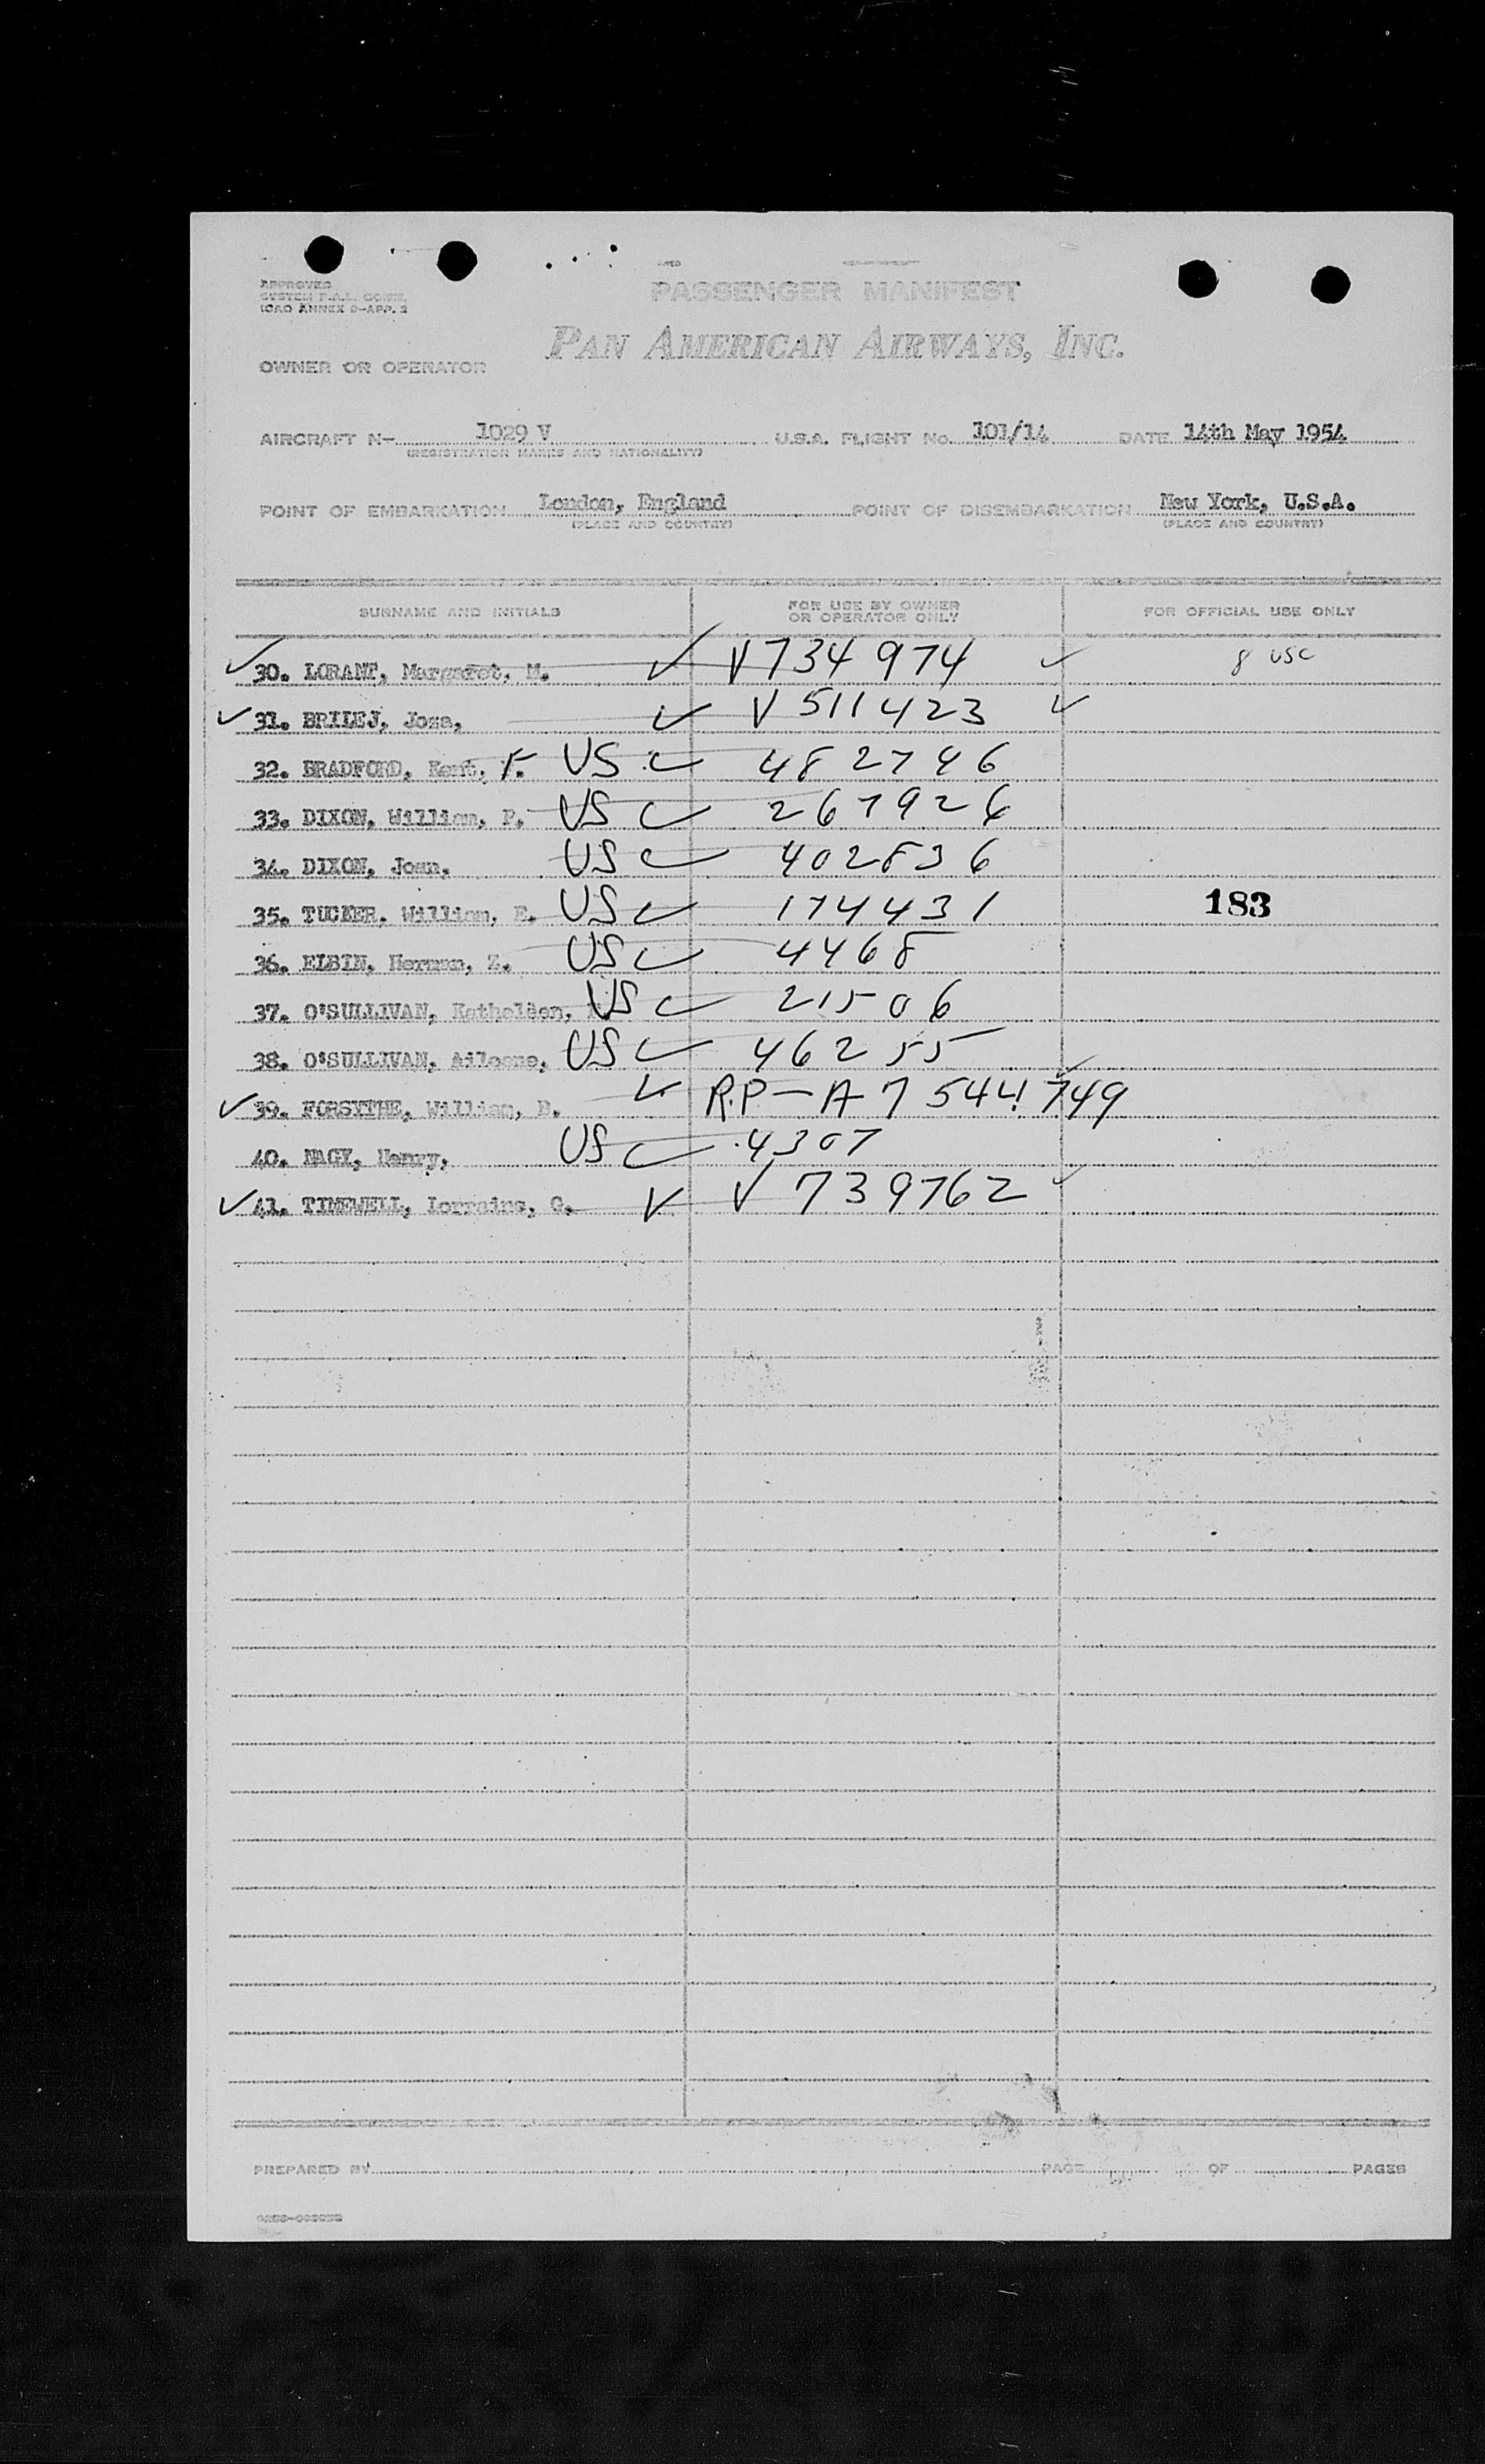 PASSENGER MANIFEST
APPROVED
SYSTEM F.A.L. COMM.
ICAO ANNEX 9-APP. 2
PAN AMERICAN AIRWAYS, INC.
OWNER OR OPERATOR
AIRCRAFT N- 1029 V U.S.A. FLIGHT No. 101/14 DATE 14th May 1954
(REGISTRATION MARKS AND NATIONALITY)
POINT OF EMBARKATION London, England POINT OF DISEMBARKATION New York, U.S.A.
(PLACE AND COUNTRY) (PLACE AND COUNTRY)
SURNAME AND INITIALS FOR USE BY OWNER OR OPERATOR ONLY FOR OFFICIAL USE ONLY
✓ 30. LORANT, Margaret, M. ✓ V734974 ✓ 8 USC
✓ 31. BRILEJ, Joza, ✓ V511423 ✓
32. BRADFORD, Kent, F. US ✓ 482746
33. DIXON, William, P. US ✓ 267926
34. DIXON, Joan, US ✓ 402836
35. TUCKER, William, E. US ✓ 174431 183
36. ELBIN, Herman, Z. US ✓ 4468
37. O'SULLIVAN, Kathaleen, US ✓ 21506
38. O'SULLIVAN, Aileene, US ✓ 46255
✓ 39. FORSYTHE, William, B. ✓ R.P-A7544749 ✓
40. NAGY, Henry, US ✓ 4307
✓ 41. TIMEWELL, Lorraine, G. ✓ V739762 ✓
PREPARED BY PAGE OF PAGES